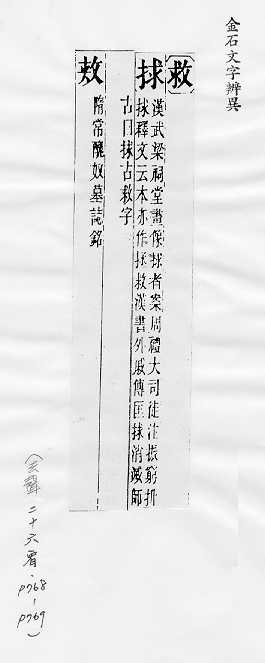 金石文字辨異
救
捄
漢武梁祠堂畫像捄者案周禮大司徒注振窮抍
捄釋文云本亦作拯救漢書外戚傳匡捄消滅師
古曰捄古救字
敖
隋常醜奴墓誌銘
(去聲二十六宥.p768-p769)